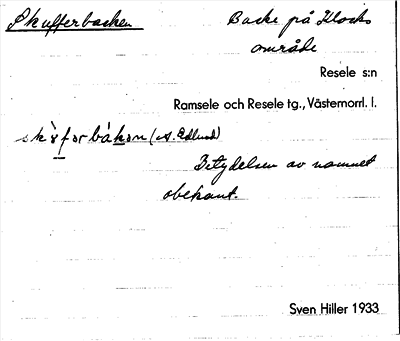 Skufferbacken
Backe på Klocks
område
Resele s:n
Ramsele och Resele tg., Västernorrl. l.
(A. Edlund)
Betydelsen av namnet
obekant.
Sven Hiller 1933